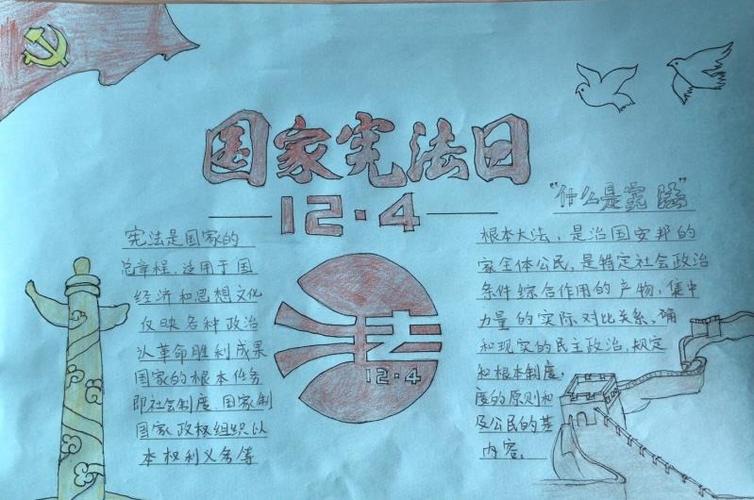 国家宪法日
12·4
宪法是国家的
总章程,适用于国
经济和思想文化
仅映各种政治
从革命胜利成果
国家的根本任务
即社会制度、国家制
国家政权组织以
本权利义务等
法
12·4
"什么是宪法"
根本大法,是治国安邦的
家全体公民,是特定社会政治
条件综合作用的产物,集中
力量的实际对比关系,确
和现实的民主政治,规定
和根本制度,
度的原则和
及公民的基
内容。